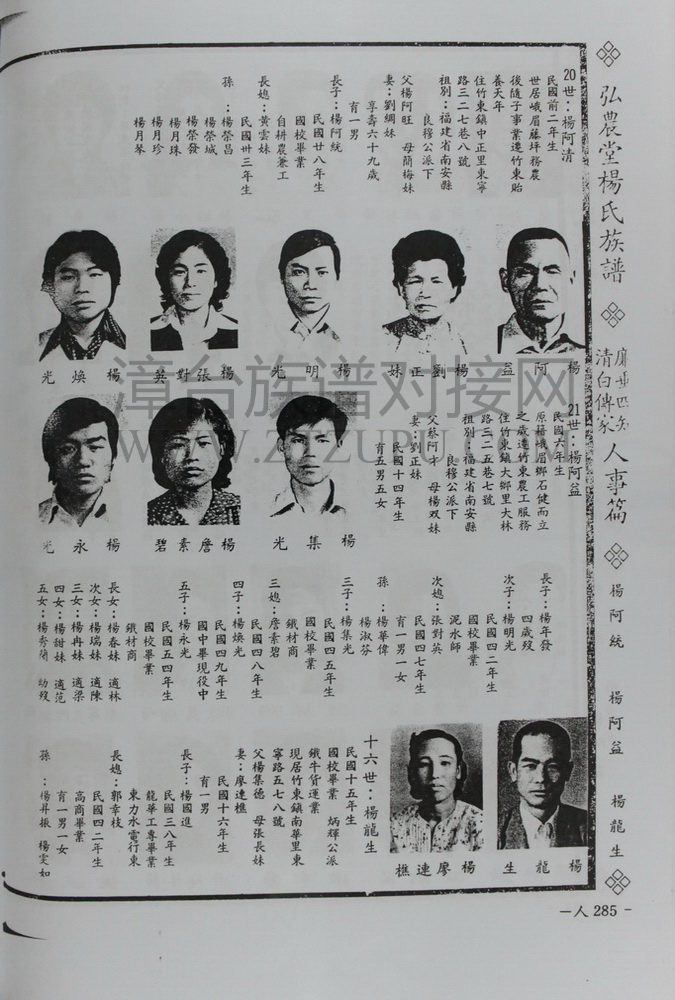 弘農堂楊氏族譜
清白傳家
人事篇
楊阿統
楊阿益
楊龍生
20世：楊阿清
民國前二年生
世居峨眉藤坪務農
後隨子事業遷竹東貽
養天年
住竹東鎮中正里東寧
路三二七巷八號
祖別：福建省南安縣
良穆公派下
父楊阿旺　母簡梅妹
妻：劉綢妹
享壽六十九歲
育一男
長子：楊阿統
民國廿八年生
國校畢業
自耕農兼工
長媳：黃雲妹
民國卅三年生
孫　：楊榮昌
楊榮城
楊榮發
楊月珠
楊月珍
楊月琴
楊阿益
楊劉正妹
楊明光
楊張對英
楊煥光
21世：楊阿益
民國六年生
原籍峨眉鄉石健而立
之歲遷竹東農工服務
住竹東鎮大鄉里大林
路三二五巷七號
祖別：福建省南安縣
良穆公派下
父蔡阿才　母楊双妹
妻：劉正妹
民國十四年生
育五男五女
楊集光
楊詹素碧
楊永光
長子：楊年發
四歲歿
次子：楊明光
民國四二年生
國校畢業
泥水師
次媳：張對英
民國四七年生
育一男一女
孫　：楊華偉
楊淑芬
三子：楊集光
民國四五年生
國校畢業
鐵材商
三媳：詹素碧
民國四八年生
四子：楊煥光
民國四九年生
國中畢現役中
五子：楊永光
民國五四年生
國校畢業
鐵材商
長女：楊春妹　適林
次女：楊瑞妹　適陳
三女：楊冉妹　適梁
四女：楊甜妹　適范
五女：楊秀蘭　幼歿
楊龍生
楊廖連樵
十六世：楊龍生
民國十五年生
國校畢業　炳輝公派
鐵牛貨運業
現居竹東鎮南華里東
寧路五七八號
父楊集德　母張長妹
妻：廖連樵
民國十六年生
育一男
長子：楊國進
民國三八年生
龍華工專畢業
東力水電行東
長媳：郭幸枝
民國四二年生
高商畢業
育一男一女
孫　：楊昇振　楊雯如
—人 285 -
漳台族谱对接网